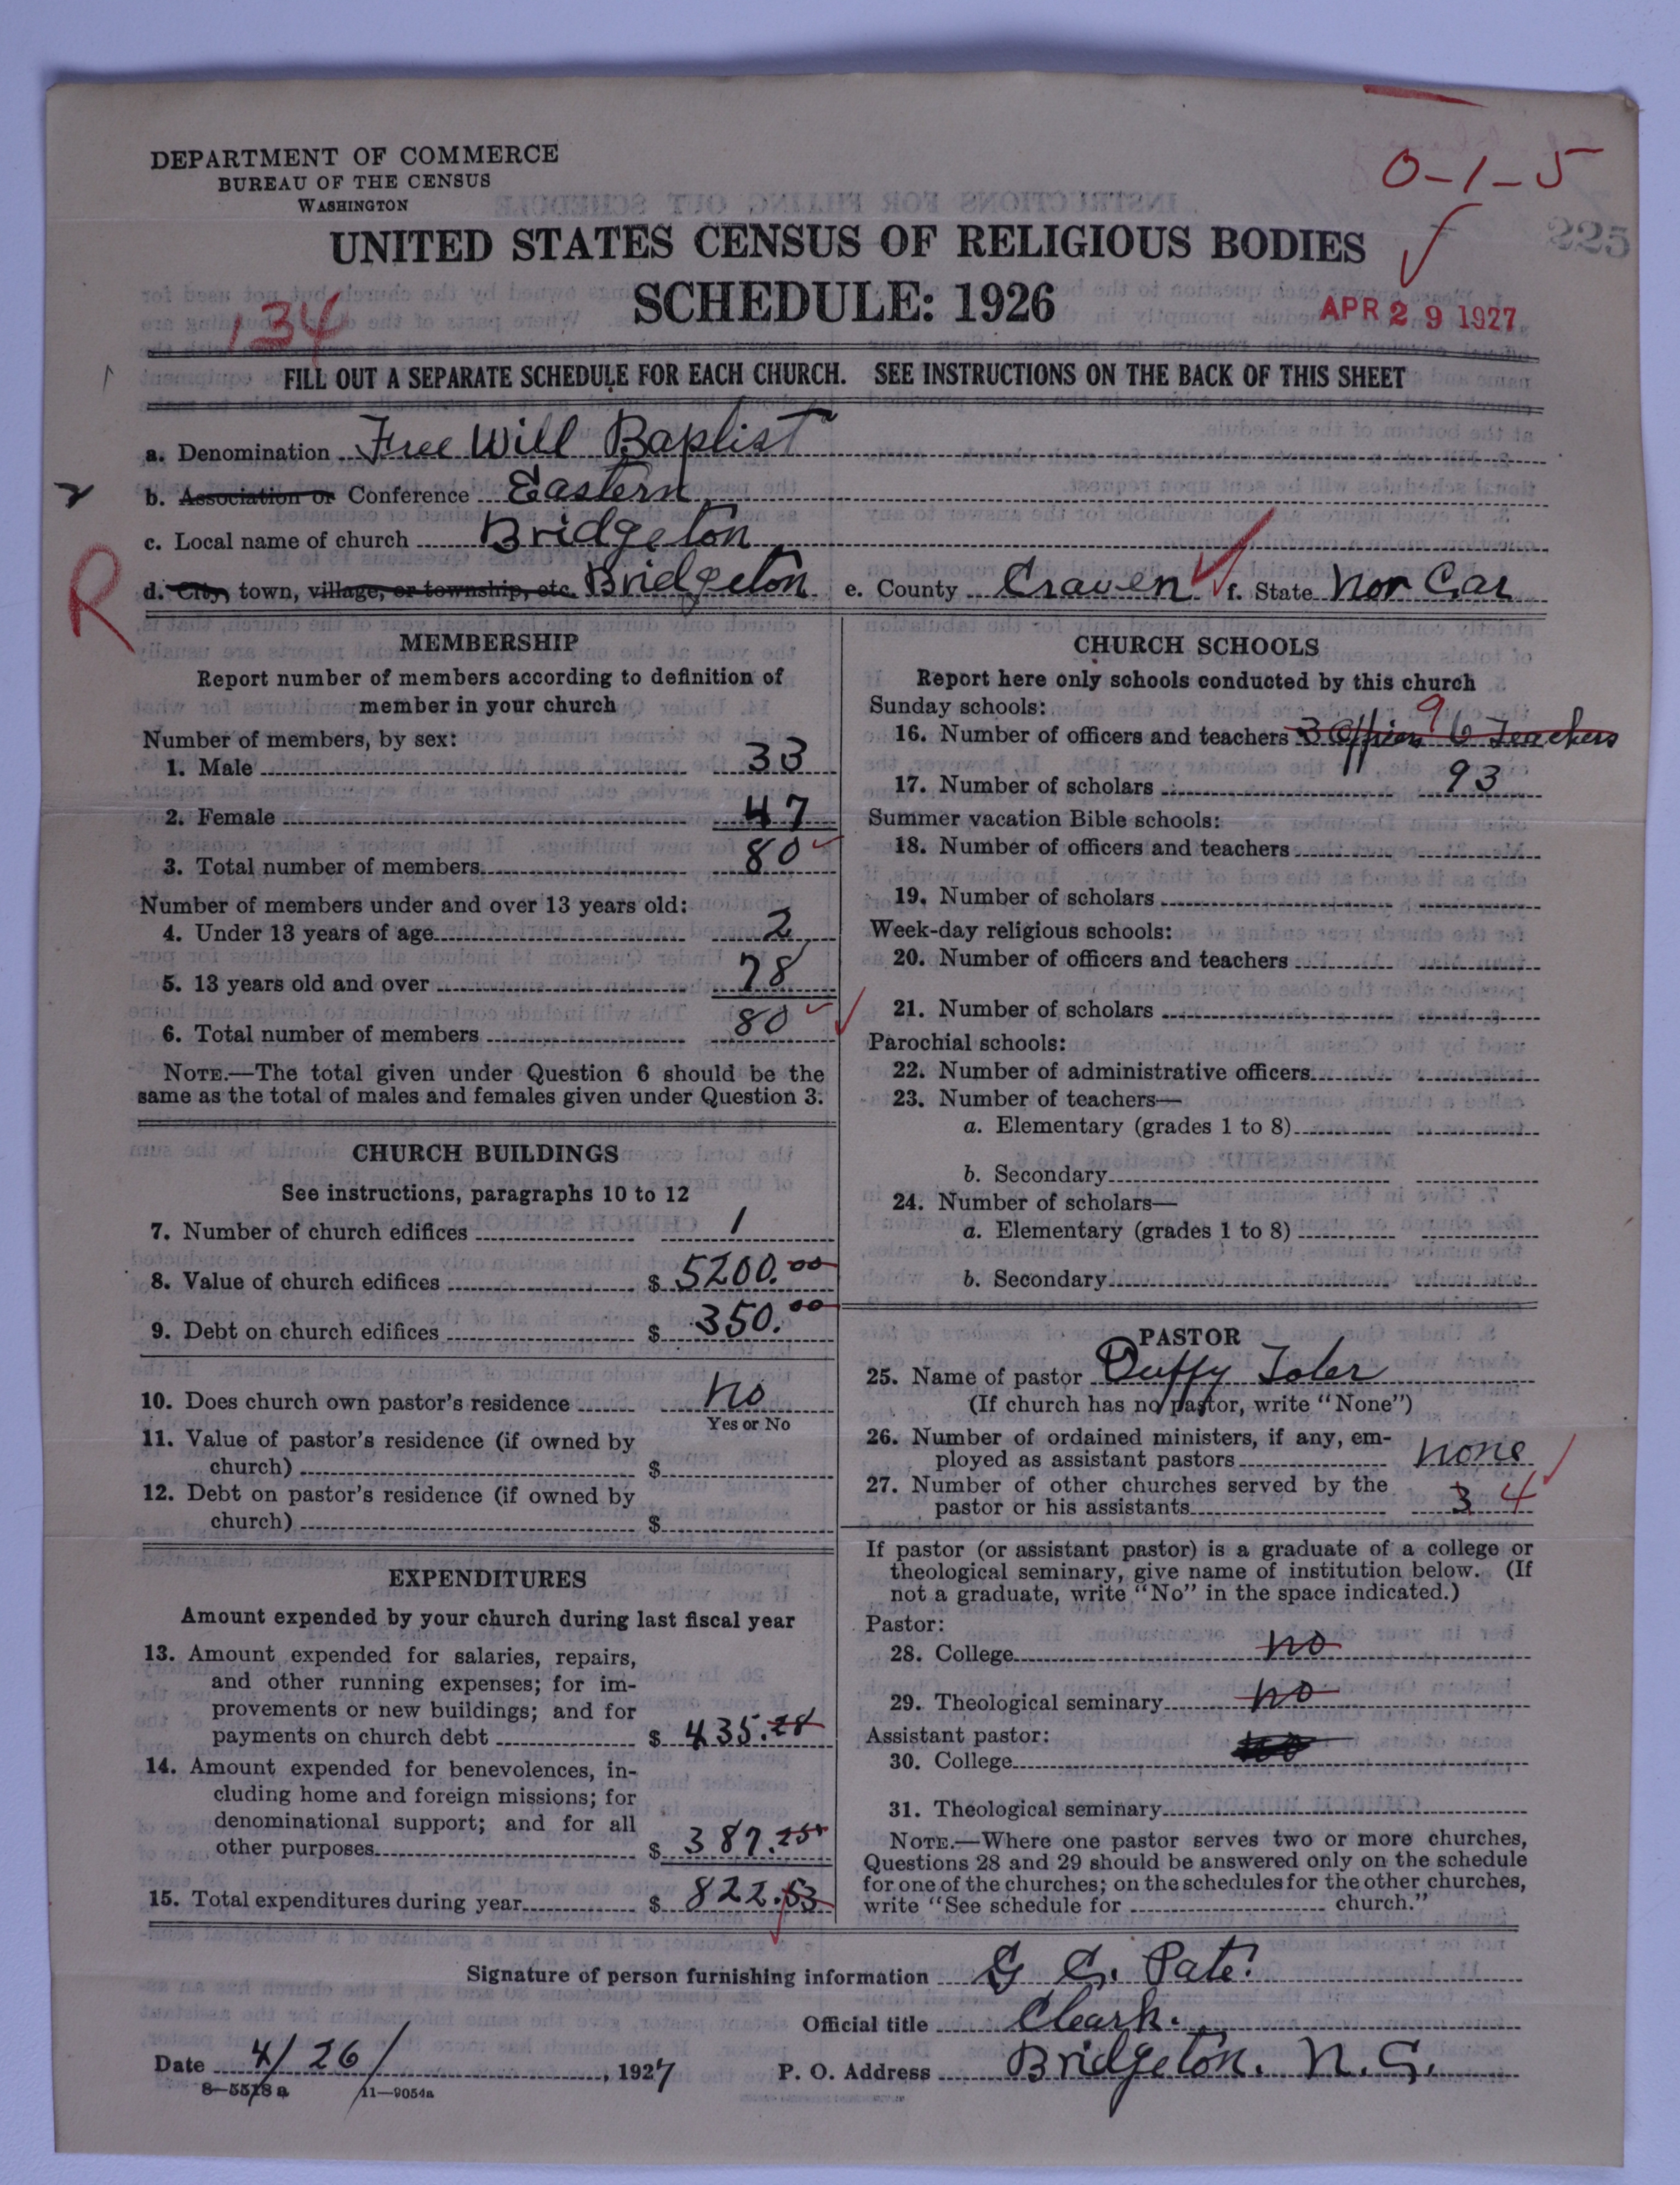 DEPARTMENT OF COMMERCE
BUREAU OF THE CENSUS
WASHINGTON
0-1-5
225
UNITED STATES CENSUS OF RELIGIOUS BODIES
SCHEDULE: 1926
134
APR 29 1927
FILL OUT A SEPARATE SCHEDULE FOR EACH CHURCH. SEE INSTRUCTIONS ON THE BACK OF THIS SHEET
a. Denomination Free Will Baptist
b. Association or Conference Eastern
c. Local name of church Bridgeton
R
d. City, town, village, or township, etc. Bridgeton e. County Craven f. State Nor Car
MEMBERSHIP
Report number of members according to definition of
member in your church
Number of members, by sex:
1. Male 33
2. Female 47
3. Total number of members 80
Number of members under and over 13 years old:
4. Under 13 years of age 2
5. 13 years old and over 78
6. Total number of members 80
NOTE.—The total given under Question 6 should be the
same as the total of males and females given under Question 3.
CHURCH BUILDINGS
See instructions, paragraphs 10 to 12
7. Number of church edifices 1
8. Value of church edifices $ 5200.00
9. Debt on church edifices $ 350.00
10. Does church own pastor's residence No
Yes or No
11. Value of pastor's residence (if owned by
church) $
12. Debt on pastor's residence (if owned by
church) $
EXPENDITURES
Amount expended by your church during last fiscal year
13. Amount expended for salaries, repairs,
and other running expenses; for im-
provements or new buildings; and for
payments on church debt $ 435.28
14. Amount expended for benevolences, in-
cluding home and foreign missions; for
denominational support; and for all
other purposes $ 387.25
15. Total expenditures during year $ 822.53
CHURCH SCHOOLS
Report here only schools conducted by this church
Sunday schools:
9
16. Number of officers and teachers 3 Officers 6 Teachers
17. Number of scholars 93
Summer vacation Bible schools:
18. Number of officers and teachers
19. Number of scholars
Week-day religious schools:
20. Number of officers and teachers
21. Number of scholars
Parochial schools:
22. Number of administrative officers
23. Number of teachers—
a. Elementary (grades 1 to 8)
b. Secondary
24. Number of scholars—
a. Elementary (grades 1 to 8)
b. Secondary
PASTOR
25. Name of pastor Duffy Toler
(If church has no pastor, write "None")
26. Number of ordained ministers, if any, em-
ployed as assistant pastors none
27. Number of other churches served by the
pastor or his assistants 3 4
If pastor (or assistant pastor) is a graduate of a college or
theological seminary, give name of institution below. (If
not a graduate, write "No" in the space indicated.)
Pastor:
28. College no
29. Theological seminary no
Assistant pastor:
30. College
31. Theological seminary
NOTE.—Where one pastor serves two or more churches,
Questions 28 and 29 should be answered only on the schedule
for one of the churches; on the schedules for the other churches,
write "See schedule for church."
Signature of person furnishing information G C. Pate.
Official title Cleark.
Date 4/26/, 1927 P. O. Address Bridgeton. N.C.
8-5518a 11-9054a